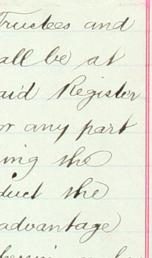 Trustees and
all be at
aid Register
or any part
ing the
duct the
advantage